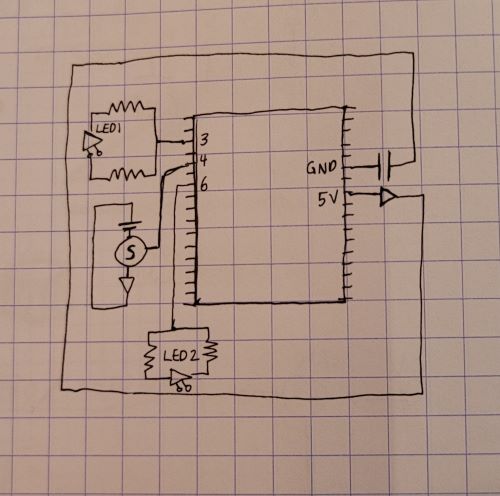 LED1
3
4
6
GND
5V
S
LED2